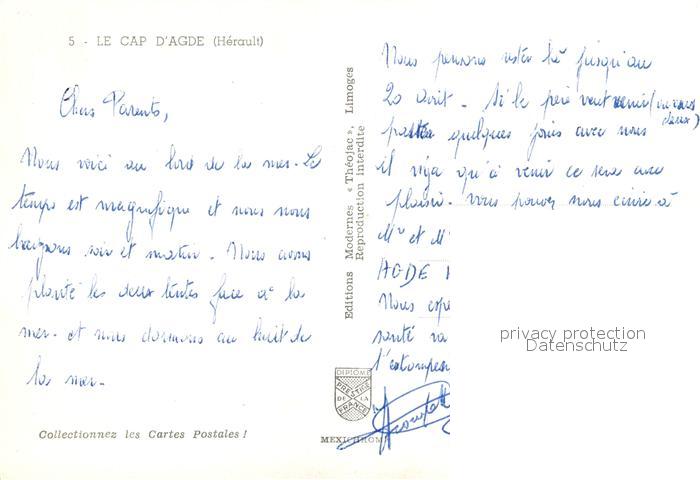 5 - LE CAP D'AGDE (Hérault)
Chers Parents,
Nous voici au bord de la mer. Le
temps est magnifique et nous nous
baignons soir et matin. Nous avons
planté les deux tentes face à la
mer. et nous dormons au bruit de
la mer.
Collectionnez les Cartes Postales !
Editions Modernes « Théojac », Limoges
Reproduction Interdite
DIPLOME
PRESTIGE
DE LA
FRANCE
MEXICHROME
Nous pensons rester là jusqu'au
20 Août. Si le père veut venir (ou vous
deux)
passer quelques jours avec nous
il n'y a qu'à venir ce sera avec
plaisir. vous pouvez nous écrire à
Mr et M
AGDE
Nous espé
santé va
l'estomper
privacy protection
Datenschutz